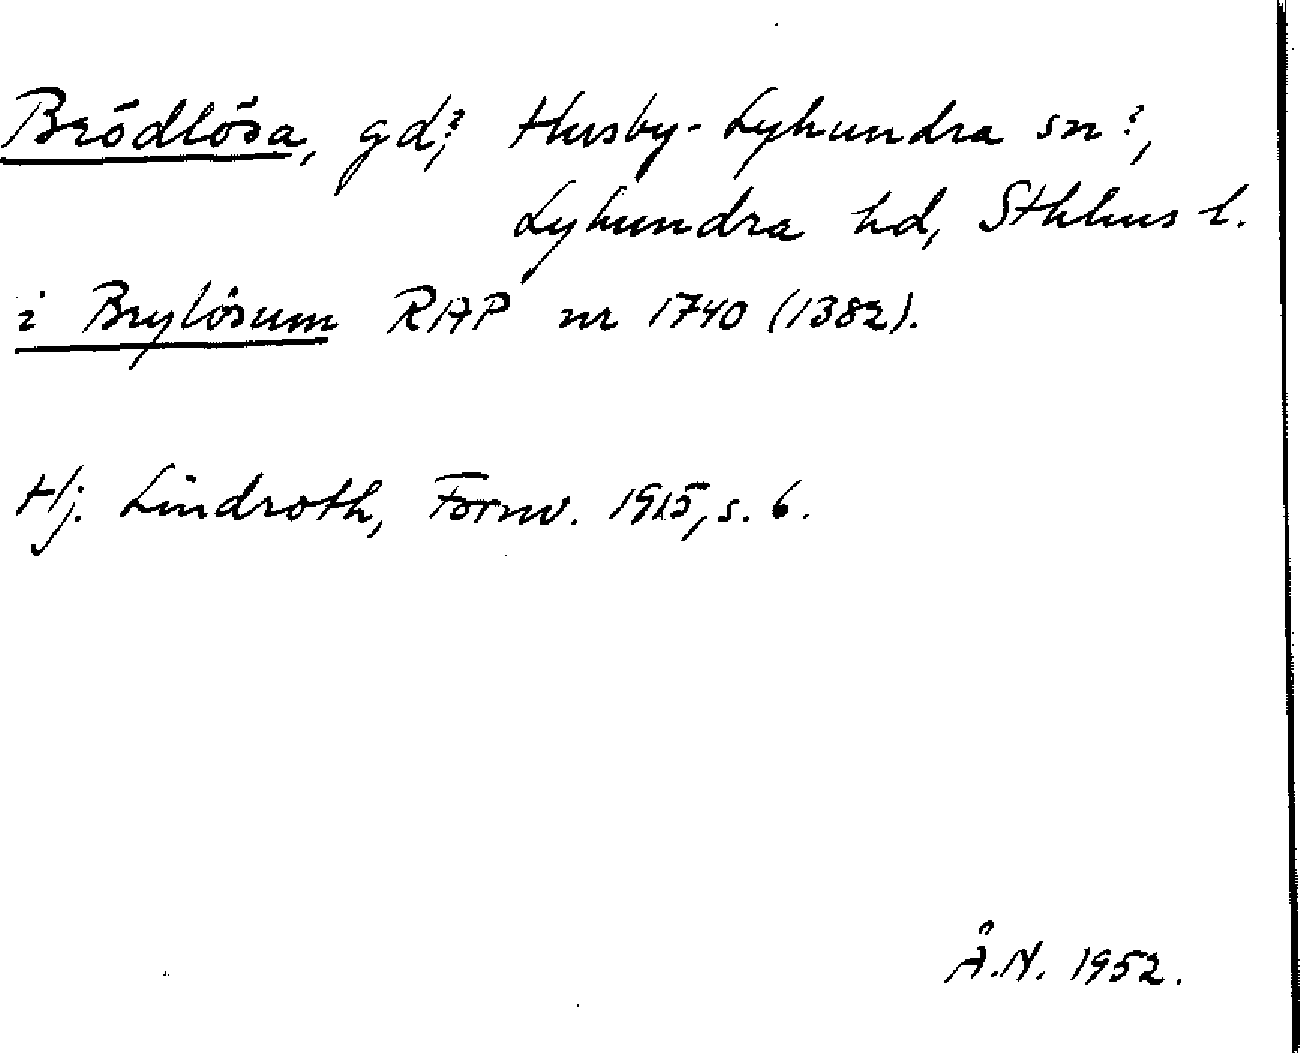 Brödlösa, gd?, Husby-Lyhundra sn?,
Lyhundra hd, Sthlms l.
i Brylösum RAP nr 1740 (1382).
Hj. Lindroth, Fornv. 1915, s. 6.
Å.N. 1952.